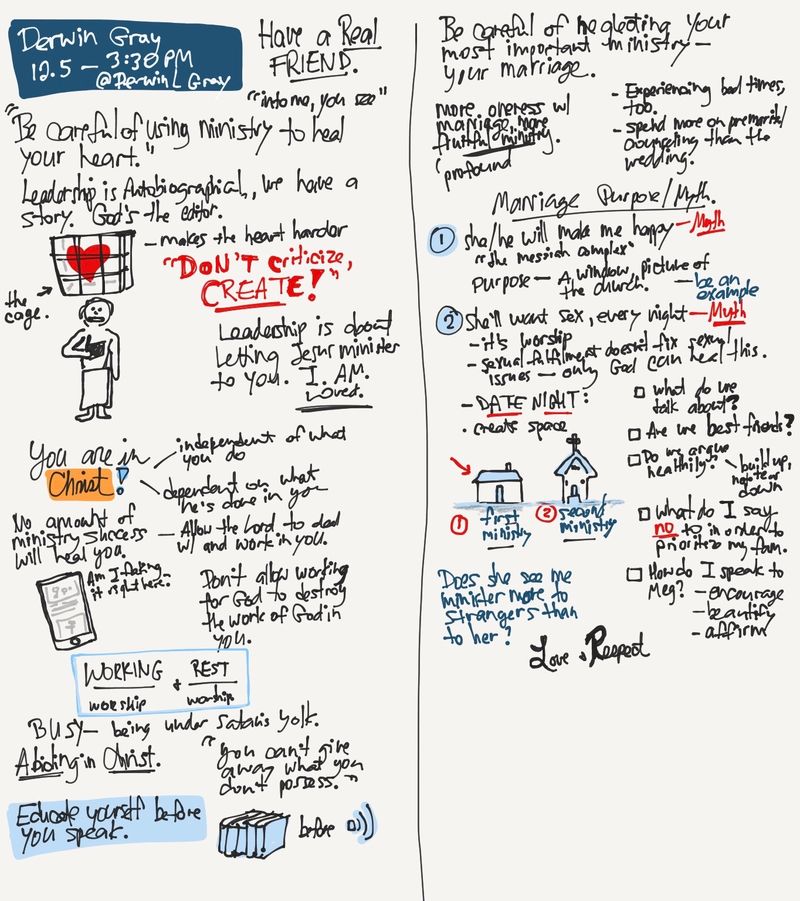 Derwin Gray
12.5 — 3:30 PM
@DerwinLGray
Have a Real
FRIEND.
"into me, you see"
"Be careful of using ministry to heal
your heart."
Leadership is Autobiographical, we have a
story. God's the editor.
— makes the heart harder
"DON'T criticize,
CREATE!"
the
cage.
Leadership is about
letting Jesus minister
to you. I. AM.
Loved.
You are in
Christ!
independent of what
you do
dependent on what
he's done in you
No amount of
ministry success
will heal you.
— Allow the Lord to deal
w/ and work in you.
Am I faking
it right here.
Don't allow working
for God to destroy
the work of God in
you.
WORKING + REST
worship worship
BUSY — being under Satan's yolk.
Abiding in Christ.
"you can't give
away what you
don't possess."
Educate yourself before
you speak.
before
Be careful of neglecting your
most important ministry —
your marriage.
more oneness w/
marriage, more
fruitful ministry.
profound
- Experiencing bad times,
too.
- spend more on premarital
counseling than the
wedding.
Marriage Purpose/Myth.
1 she/he will make me happy — Myth
"the messiah complex"
Purpose — A window, picture of
the church.
— be an
example
2 she'll want sex, every night — Myth
- it's worship
- sexual fulfillment doesn't fix sexual
issues — only God can heal this.
- DATE NIGHT:
• create space
what do we
talk about?
Are we best friends?
Do we argue
healthily?
build up,
not tear
down
What do I say
no to in order to
prioritize my fam.
How do I speak to
Meg? - encourage
- beautify
- affirm
1 first
ministry
2 second
ministry
Does she see me
minister more to
strangers than
to her?
Love + Respect